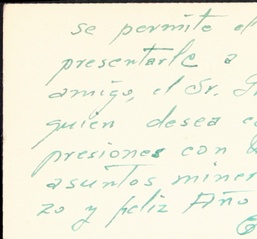 se permite el
presentarle a
amigo, el Sr.
quien desea
presiones con
asuntos miner
zo y feliz Año